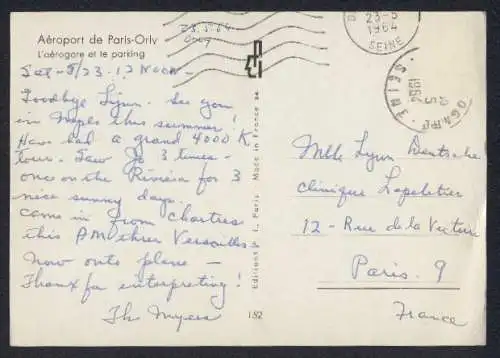 Aéroport de Paris-Orly
L'aérogare et le parking
23.5.64
Orly
23-5
1964
SEINE
SEINE
1964
Sat - 5/23 - 12 Noon -
Goodbye Lynn. See you
in Mpls this summer!
Have had a grand 4000 K
tour. Saw Jo 3 times -
once on the Riviera for 3
nice sunny days.
Came in from Chartres
this AM thru Versailles &
now onto plane -
Thanx for interpreting!
Th Myers
Editions P. I., Paris Made in France
182
Mlle Lynn Deutsche
Clinique Lapeletier
12 - Rue de la Victoire
Paris. 9
France